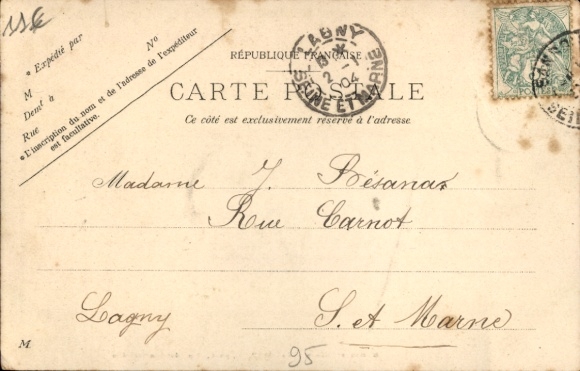 11€
* Expédié par
N°
M
Demt à
Rue
* L'inscription du nom et de l'adresse de l'expéditeur est facultative.
RÉPUBLIQUE FRANÇAISE
LAGNY
2 04
SEINE ET MARNE
CARTE POSTALE
Ce côté est exclusivement réservé à l'adresse
Madame J. Bésanas
Rue Carnot
Lagny
S. et Marne
M.
95